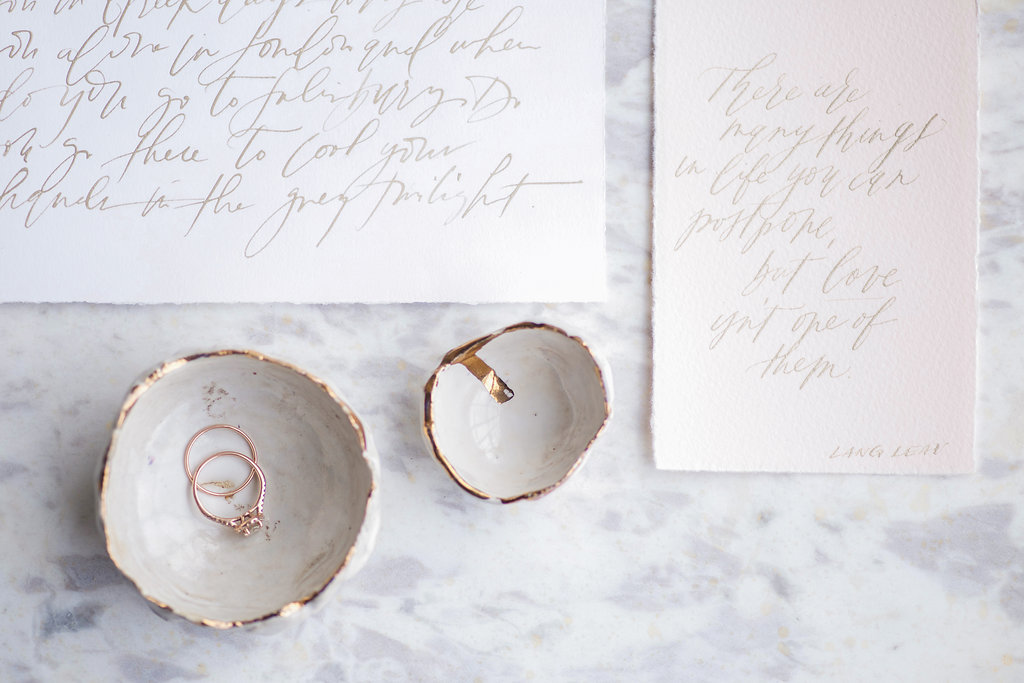 in Greek days
alone in London and when
do you go to Salisbury. Do
you go there to cool your
hands in the grey twilight
There are
many things
in life you can
postpone,
but love
isn't one of
them.
LANG LEAV